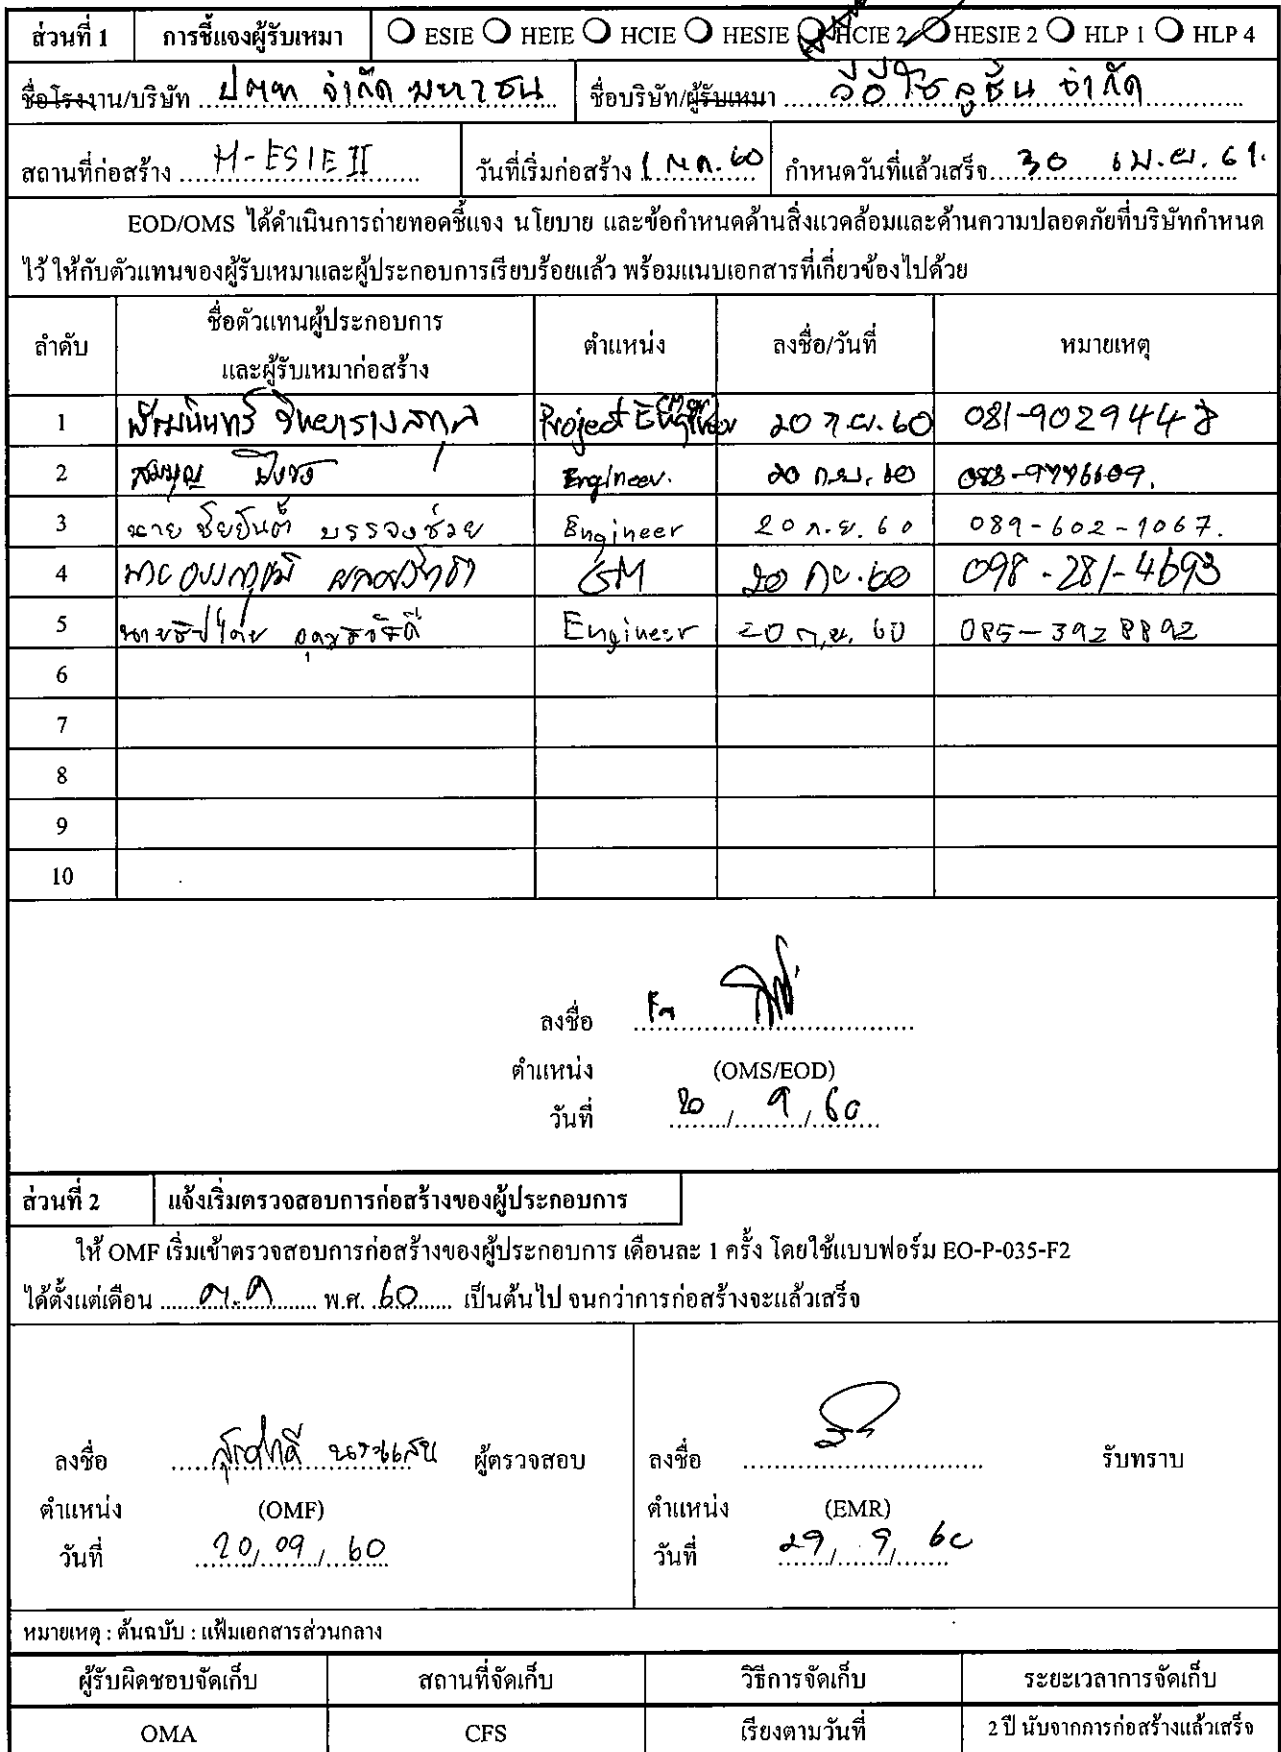 ส่วนที่ 1 การชี้แจงผู้รับเหมา ESIE HEIE HCIE HESIE HCIE 2 HESIE 2 HLP 1 HLP 4
ชื่อโรงงาน/บริษัท ปตท จำกัด มหาชน ชื่อบริษัท/ผู้รับเหมา วีอีโซลูชั่น จำกัด
สถานที่ก่อสร้าง H-ESIE II วันที่เริ่มก่อสร้าง 60 กำหนดวันที่แล้วเสร็จ 30 เม.ย. 61.
EOD/OMS ได้ดำเนินการถ่ายทอดชี้แจง นโยบาย และข้อกำหนดด้านสิ่งแวดล้อมและด้านความปลอดภัยที่บริษัทกำหนด
ไว้ ให้กับตัวแทนของผู้รับเหมาและผู้ประกอบการเรียบร้อยแล้ว พร้อมแนบเอกสารที่เกี่ยวข้องไปด้วย
ลำดับ ชื่อตัวแทนผู้ประกอบการ ตำแหน่ง ลงชื่อ/วันที่ หมายเหตุ
และผู้รับเหมาก่อสร้าง
1 Project 20 ก.ย. 60 081-9029448
2 สมบุญ Engineer. 20 ก.ย. 60
3 นาย ชัยยันต์ บรรจงช่วย Engineer 20 ก.ย. 60 089-602-1067.
4 GM 20 กย. 60 098-281-4693
5 Engineer 20 ก.ย. 60 085-3928892
6
7
8
9
10
ลงชื่อ
ตำแหน่ง (OMS/EOD)
วันที่ 20 / 9 / 60
ส่วนที่ 2 แจ้งเริ่มตรวจสอบการก่อสร้างของผู้ประกอบการ
ให้ OMF เริ่มเข้าตรวจสอบการก่อสร้างของผู้ประกอบการ เดือนละ 1 ครั้ง โดยใช้แบบฟอร์ม EO-P-035-F2
ได้ตั้งแต่เดือน ต.ค พ.ศ. 60 เป็นต้นไป จนกว่าการก่อสร้างจะแล้วเสร็จ
ลงชื่อ สุรศักดิ์ ผู้ตรวจสอบ ลงชื่อ รับทราบ
ตำแหน่ง (OMF) ตำแหน่ง (EMR)
วันที่ 20 / 09 / 60 วันที่ 29 / 9 / 60
หมายเหตุ : ต้นฉบับ : แฟ้มเอกสารส่วนกลาง
ผู้รับผิดชอบจัดเก็บ สถานที่จัดเก็บ วิธีการจัดเก็บ ระยะเวลาการจัดเก็บ
OMA CFS เรียงตามวันที่ 2 ปี นับจากการก่อสร้างแล้วเสร็จ